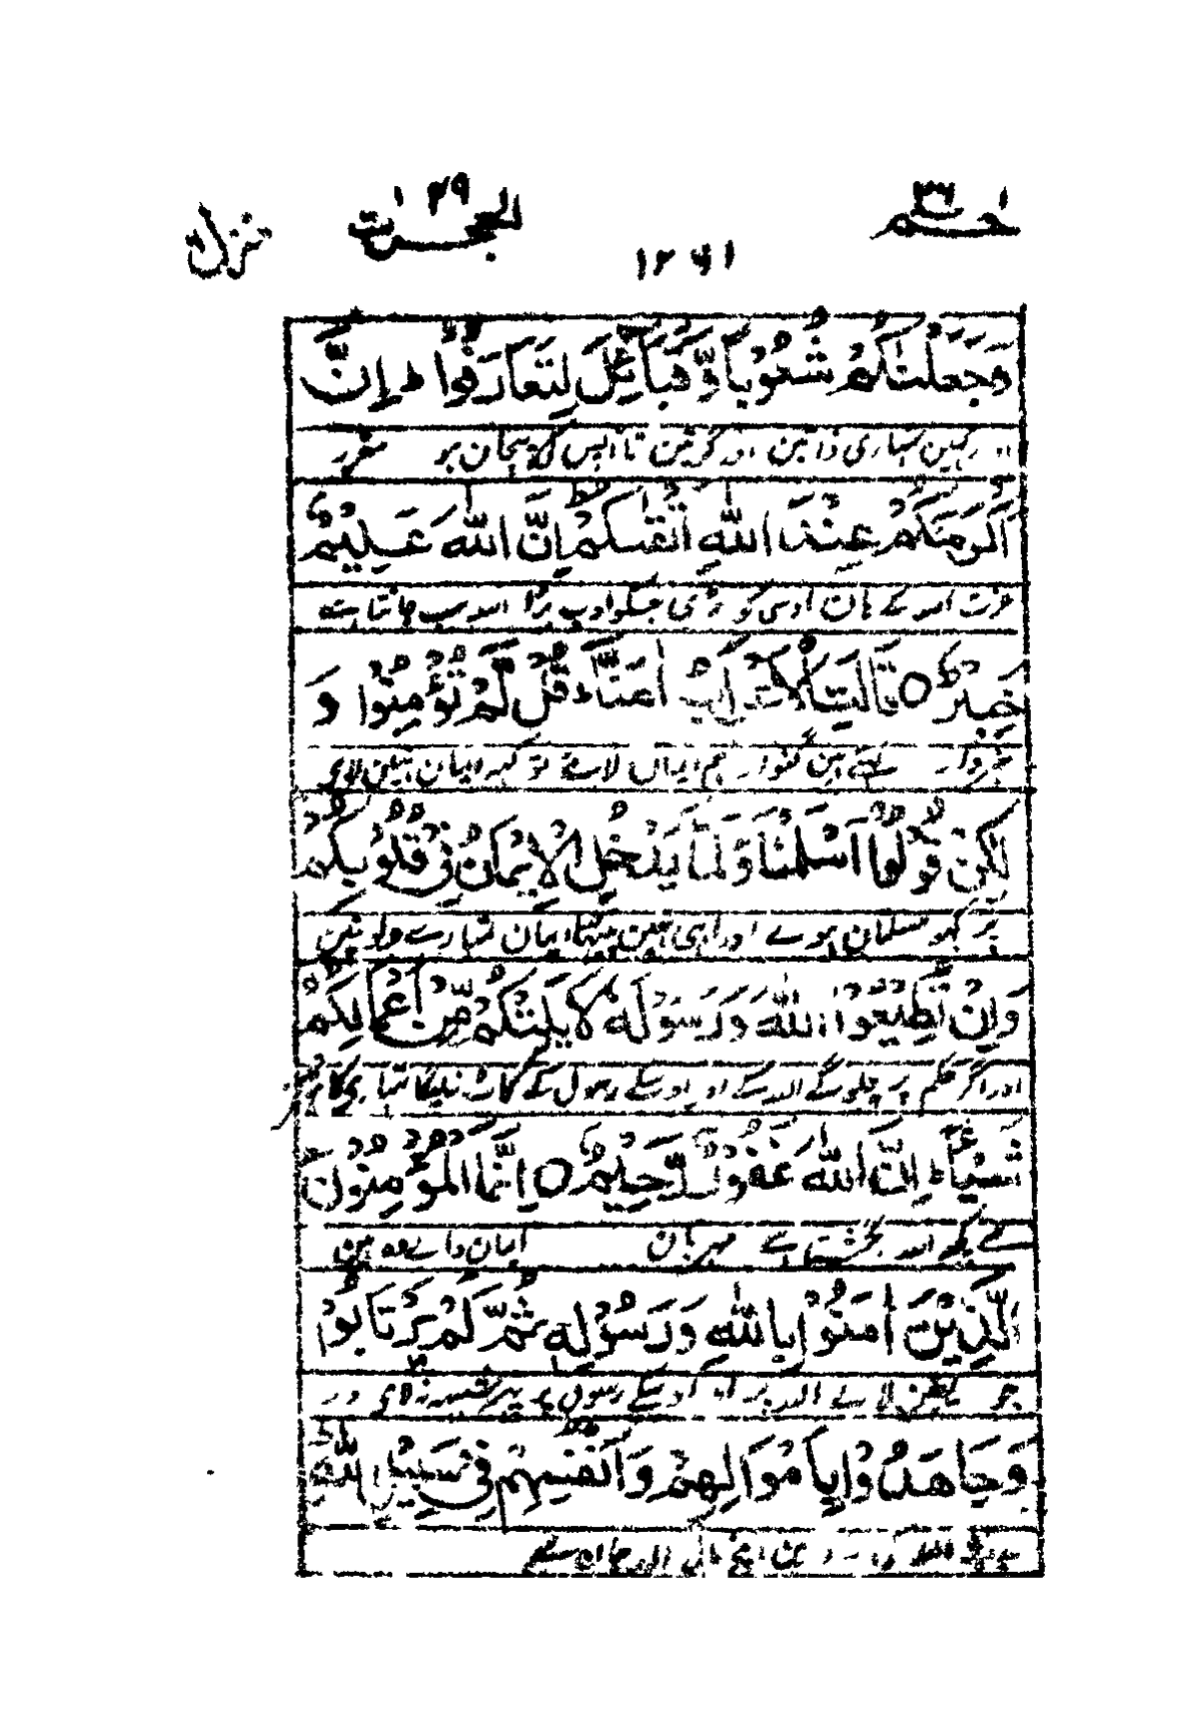 حٰم ٢٦
الحجرٰت ٤٩
منزل
١٢٦١
وَجَعَلْنٰكُمْ شُعُوْبًا وَّقَبَآئِلَ لِتَعَارَفُوْا ؕ اِنَّ
اور رکہین تمہاری ذاتین اور گوتین تا آپس کی پہچان ہو مقرر
اَكْرَمَكُمْ عِنْدَ اللّٰهِ اَتْقٰىكُمْ ؕ اِنَّ اللّٰهَ عَلِيْمٌ
عزت اللہ کے ہان اوسی کو بڑی جسکو ادب بڑا اللہ سب جانتا ہے
خَبِيْرٌ ○ قَالَتِ الْاَعْرَابُ اٰمَنَّا ؕ قُلْ لَّمْ تُؤْمِنُوْا وَ
خبردار کہتے ہین گنوار ہم ایمان لائے تو کہہ ایمان نہین لائے
لٰكِنْ قُوْلُوْۤا اَسْلَمْنَا وَلَمَّا يَدْخُلِ الْاِيْمَانُ فِيْ قُلُوْبِكُمْ
پر کہو مسلمان ہوے اور ابہی نہین پیٹھا ایمان تمہارے دلو نمین
وَاِنْ تُطِيْعُوا اللّٰهَ وَرَسُوْلَهٗ لَا يَلِتْكُمْ مِّنْ اَعْمَالِكُمْ
اور اگر حکم پر چلوگے اللہ کے اور اوسکے رسول کے کاٹ نلیگا تمہاری کامون
شَيْـًٔا ؕ اِنَّ اللّٰهَ غَفُوْرٌ رَّحِيْمٌ ○ اِنَّمَا الْمُؤْمِنُوْنَ
سے کچھ اللہ بخشتا ہے مہربان ایمان والے وہ ہین
الَّذِيْنَ اٰمَنُوْا بِاللّٰهِ وَرَسُوْلِهٖ ثُمَّ لَمْ يَرْتَابُوْا
جو یقین لائے اللہ پر اور اوسکے رسول پر پہر شبہہ نہ لائے اور
وَجَاهَدُوْا بِاَمْوَالِهِمْ وَاَنْفُسِهِمْ فِيْ سَبِيْلِ اللّٰهِ
اللہ مین اپنے مال اور جان سے